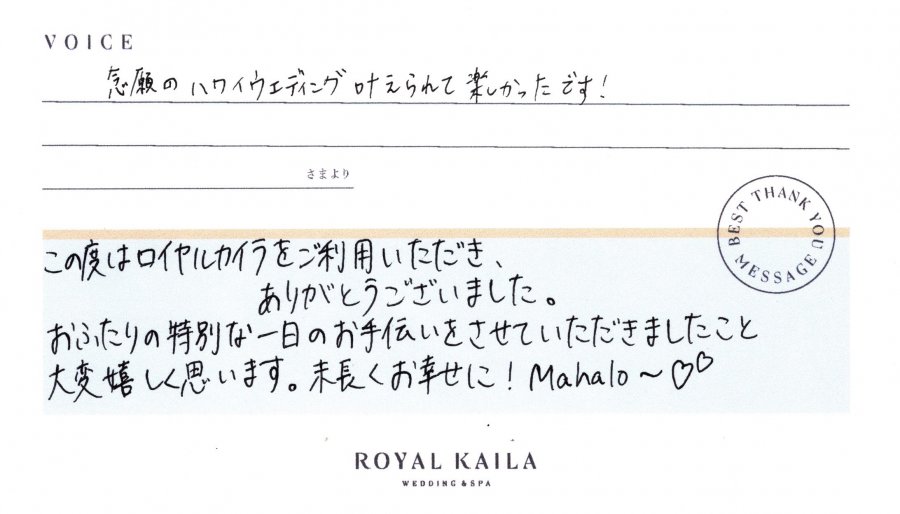 VOICE
念願のハワイウエディング叶えられて楽しかったです!
さまより
BEST THANK YOU MESSAGE
この度はロイヤルカイラをご利用いただき、
ありがとうございました。
おふたりの特別な一日のお手伝いをさせていただきましたこと
大変嬉しく思います。末長くお幸せに! Mahalo~♡♡
ROYAL KAILA
WEDDING & SPA